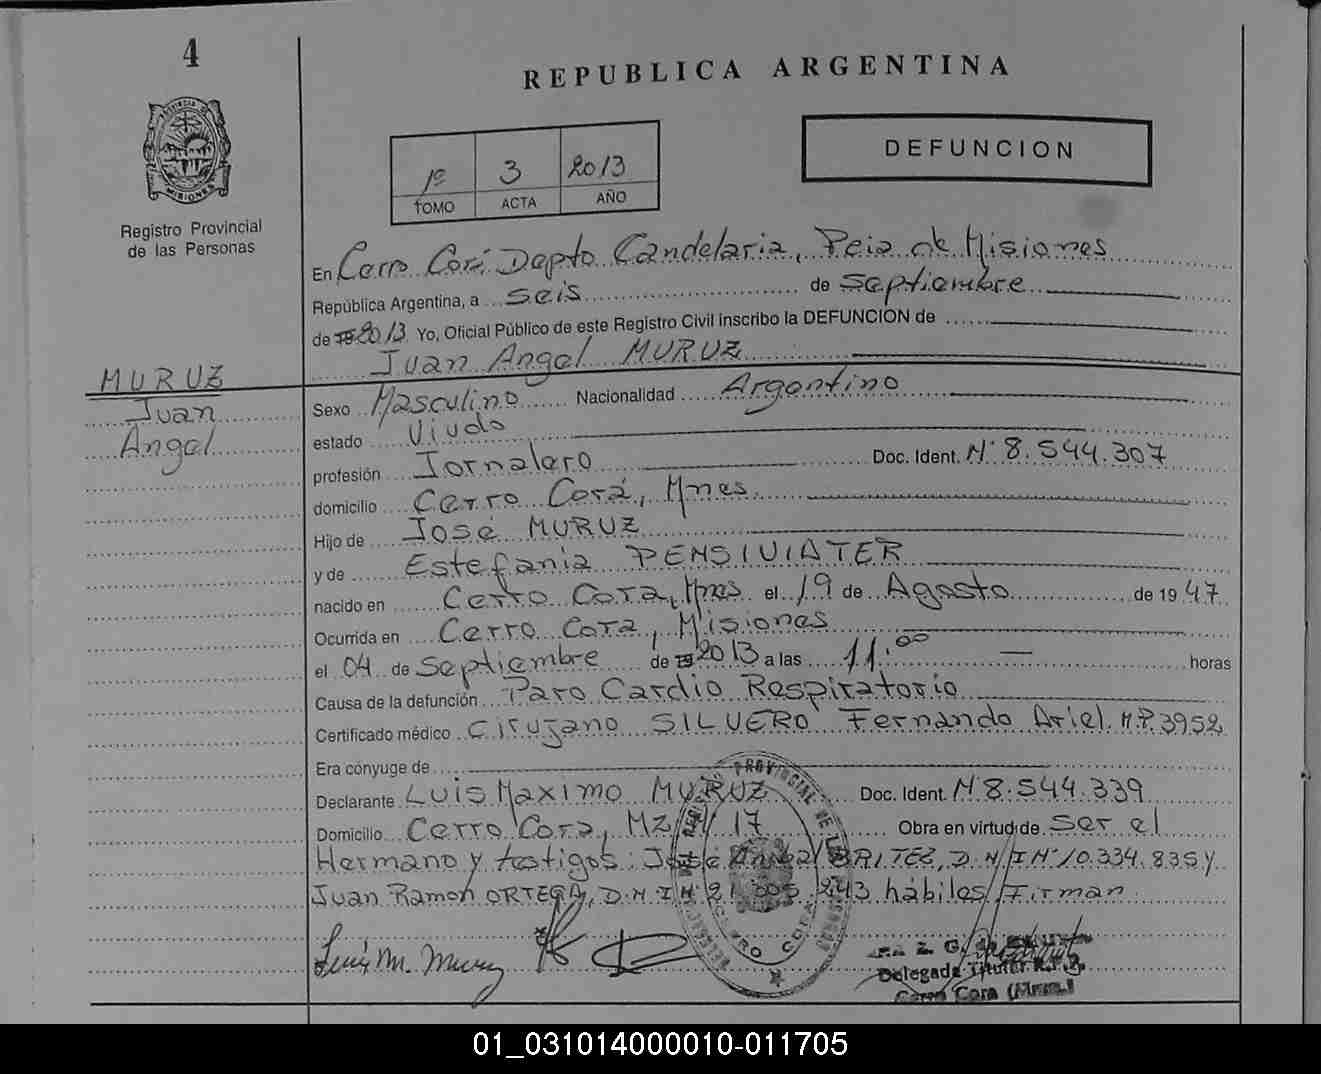 4
REPUBLICA ARGENTINA
DEFUNCION
1º 3 2013
TOMO ACTA AÑO
Registro Provincial
de las Personas
En Cerro Corá Depto Candelaria, Pcia de Misiones
República Argentina, a seis de septiembre
de 2013 Yo, Oficial Público de este Registro Civil inscribo la DEFUNCION de
Juan Angel MURUZ
MURUZ
Juan
Angel
Sexo Masculino Nacionalidad Argentino
estado Viudo
profesión Jornalero Doc. Ident. Nº 8.544.307
domicilio Cerro Corá, Mnes
Hijo de José MURUZ
y de Estefania PENSIVIATER
nacido en Cerro Cora, Mnes el 19 de Agosto de 1947
Ocurrida en Cerro Cora, Misiones
el 04 de Septiembre de 2013 a las 11:00 horas
Causa de la defunción Paro Cardio Respiratorio
Certificado médico Cirujano SILVERO Fernando Ariel M.P. 3952
Era cónyuge de
Declarante Luis Maximo MURUZ Doc. Ident. Nº 8.544.339
Domicilio Cerro Cora, MZ 17 Obra en virtud de ser el
Hermano y testigos: José BRITEZ, D.N.I Nº 10.334.835 y
Juan Ramon ORTEGA, D.N.I Nº 21.305.243 hábiles Firman
Luis M. Muruz
REGISTRO PROVINCIAL DE LAS PERSONAS
CERRO CORA
Delegada Titular R.P.P.
Cerro Cora (Mnes.)
01_031014000010-011705